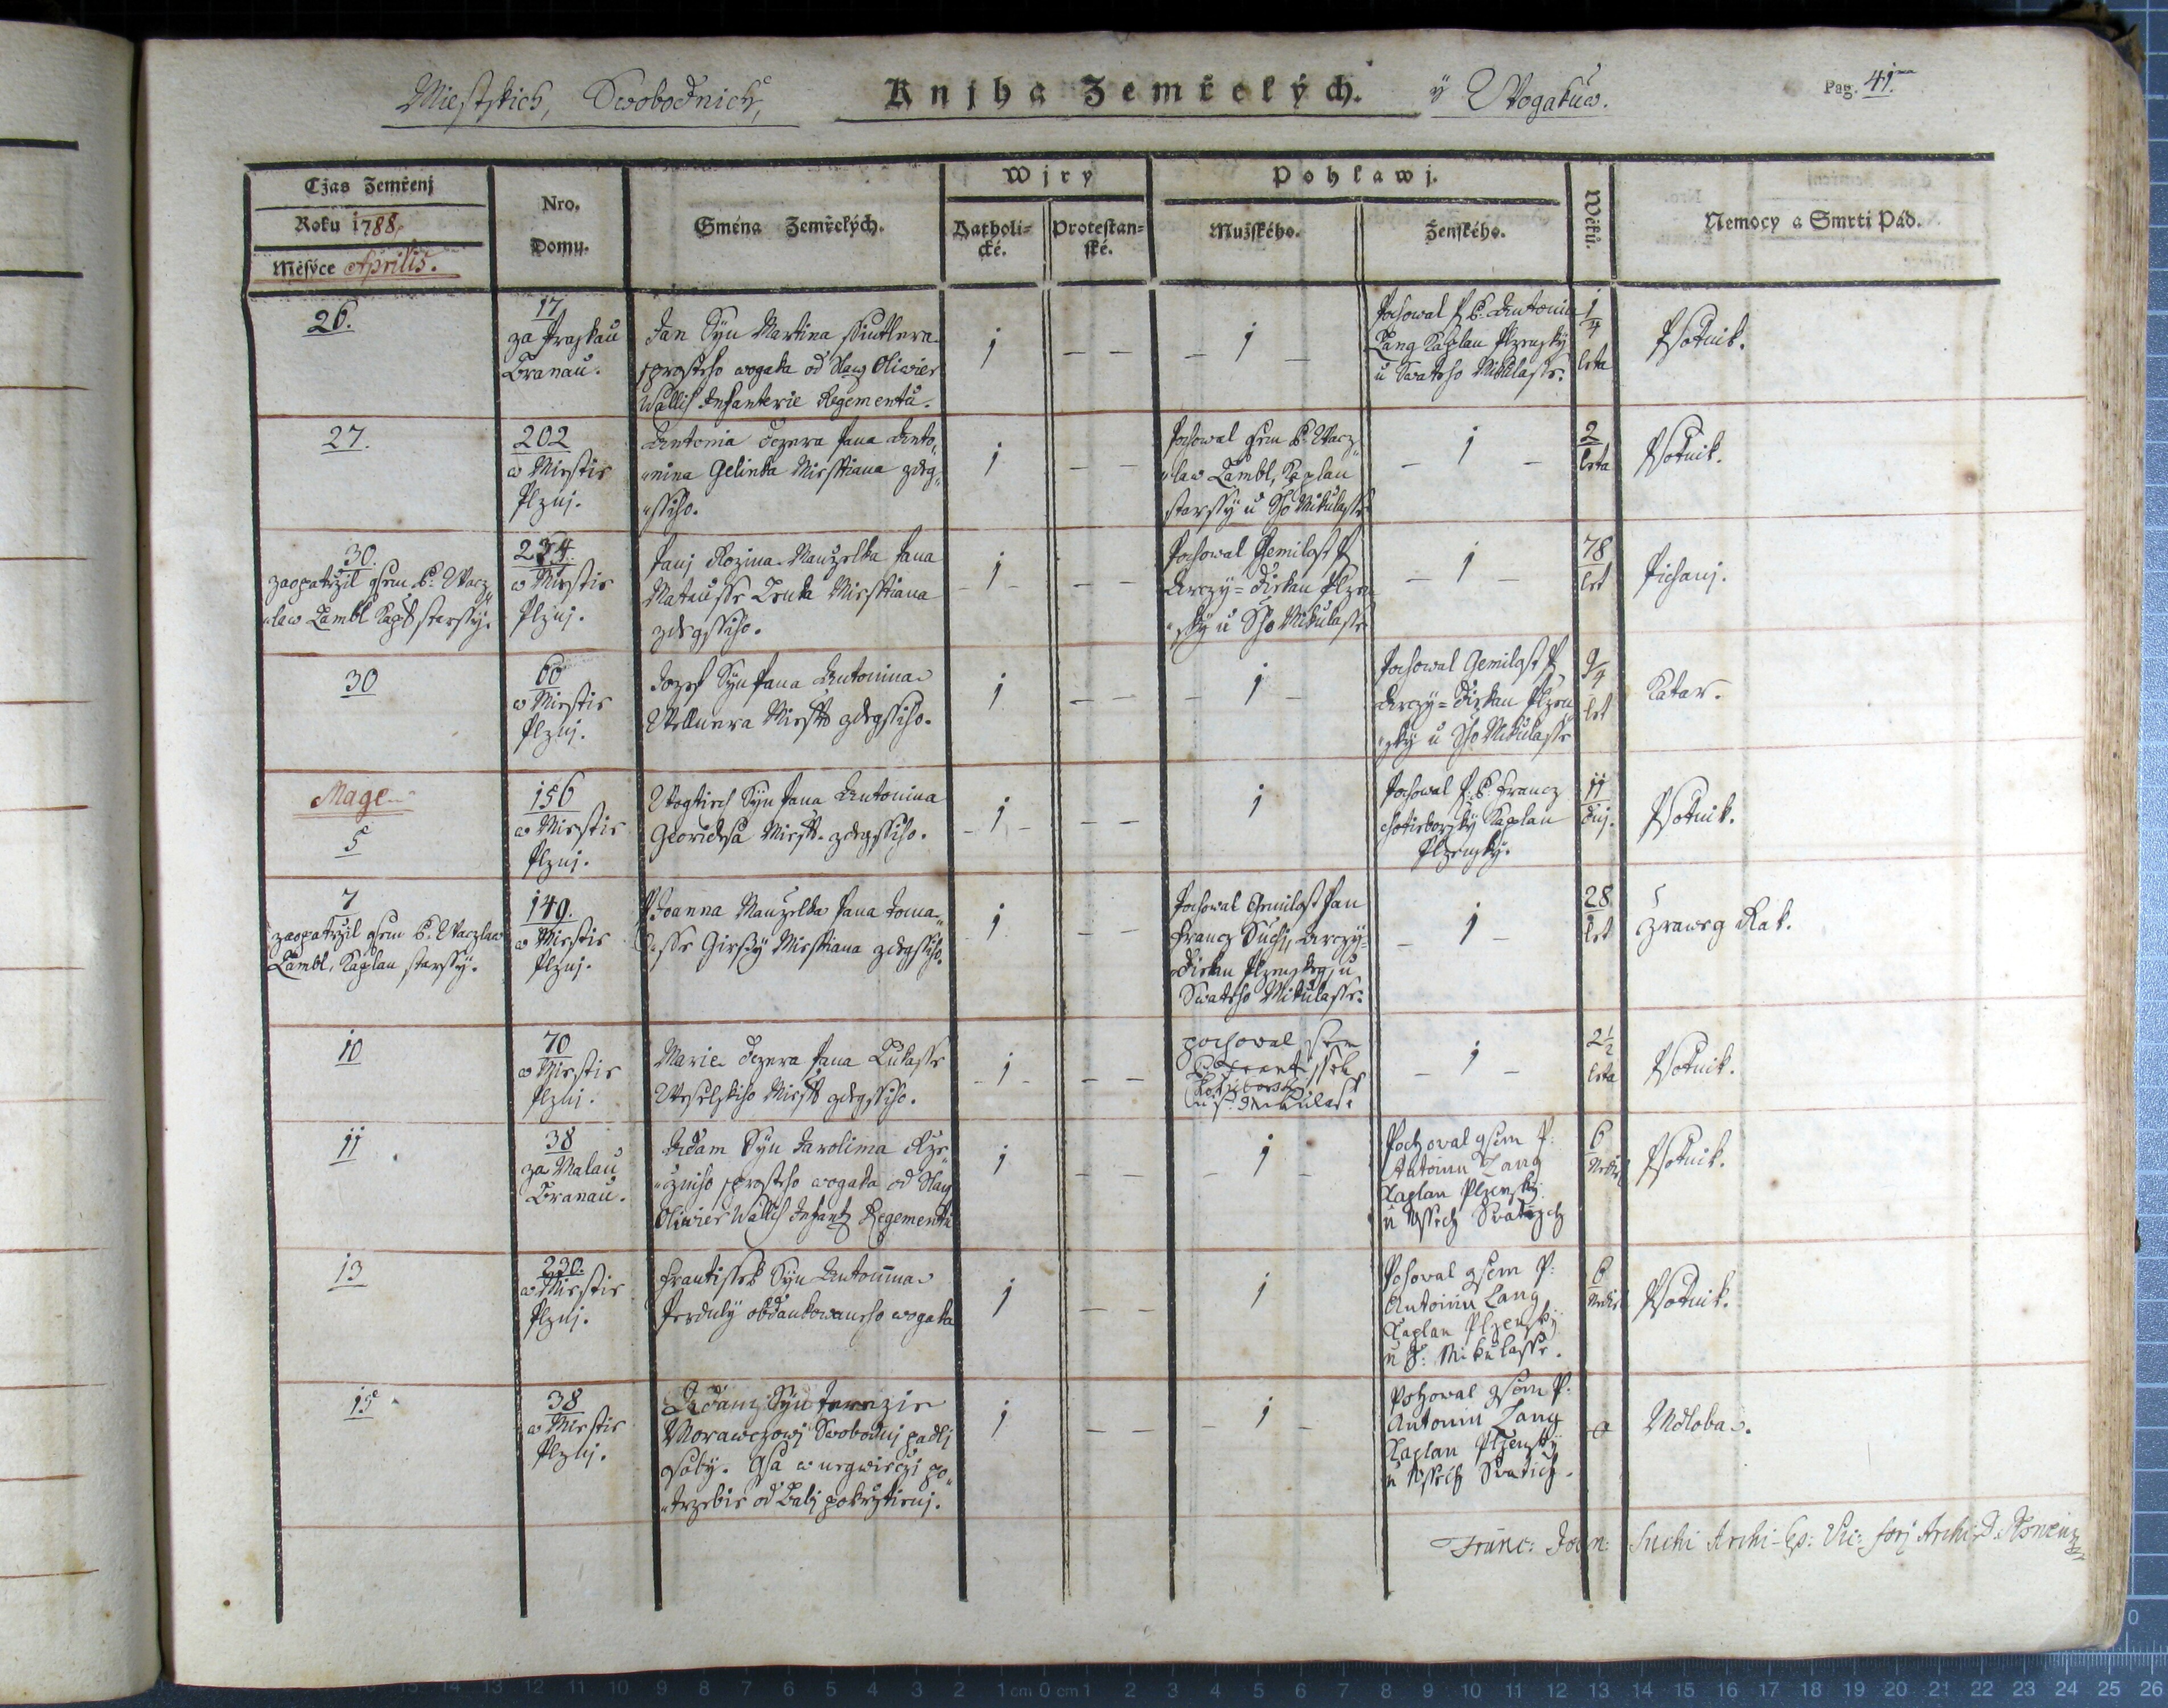 Miestskich, Swobodnich, Knjha Zemřelých. ÿ Wogakuw. Pag. 41.
Cžas Zemřenj
Roku 1788.
Měsýce Aprilis.
Nro.
Domu.
Gména Zemřelých.
Wjry
Katholi-
cké.
Protestan-
ské.
Pohlawj.
Mužského.
Ženského.
Wěků.
Nemocy a Smrti Pád.
26.
17
za Pražkau
Branau.
Jan Syn Martina
sprosteho wogaka od Slaw. Olivier
Wallis Infanterie Regementu.
1
1
Pochowal P. B. Antonin
Lang Kaplan Plzensky
u Swateho Mikulasse.
1/4
leta
Psotnik.
27.
202
w Miestie
Plznj.
Antonia dczera Pana Anto„
„nina Gelinka Miesstiana zdeg„
„ssiho.
1
Pochowal gsem B: Wacz„
„law Lambl, Kaplan
starssy u Sho Mikulasse
1
2
leta
Psotnik.
30.
zaopatrzil gsem B: Wacz„
„law Lambl Kapl. starssy.
234.
w Miestie
Plznj.
Panj Rozina Manzelka Pana
Matausse Miesstiana
zdegssiho.
1
Pochowal Gemilost P
Arczy=Diekan Plzen
„sky u Sho Mikulasse
1
78
let
Pichanj.
30
60
w Miestie
Plznj.
Jozef Syn Pana Antonina
Wellnera Miesst. zdegssiho.
1
1
Pochowal Gemilost P
Arczy=Diekan Plzen
„sky u Sho Mikulasse
9/4
let
Katar.
Mage
5
156
w Miestie
Plznj.
Wogtiech Syn Pana Antonina
Miesst. zdegssiho.
1
1
Pochowal P. B. Francz
Chotieborsky Kaplan
Plzensky.
11
dnj.
Psotnik.
7
zaopatrzil gsem B. Waczlaw
Lambl, Kaplan starssy.
149.
w Miestie
Plznj.
Joanna Manzelka Pana Toma„
„sse Girsy Miesstiana zdegssiho.
1
Pochowal Gemilost Pan
Francz Suchj, Arczy=
Diekan Plzenskeg, u
Swateho Mikulasse.
1
28
let
zraweg Rak.
10
70
w Miestie
Plznj.
Marie dczera Pana Lukasse
Weselskiho Miesst. zdegssiho.
1
pochoval sem
Frantissek
Chotieborsky
u S. Mikulasse
1
2 1/2
leta
Psotnik.
11
38
za Malau
Branau.
Adam Syn Jarolima
sprosteho wogaka od Slaw
Olivier Wallis Infantz Regementu
1
1
Pochoval gsem P:
Antonin Lang
Kaplan Plzensky
u Wssech Svatych
6
Nediel
Psotnik.
13
230.
w Miestie
Plznj.
Frantissek Syn Antonina
Perduly obdankowaneho wogaka
1
1
Pohoval gsem P:
Antonin Lang
Kaplan Plzensky
u S: Mikulasse.
6
Nediel
Psotnik.
15
38
w Miestie
Plznj.
Adam Syn Terezie
Morawczowj Swobodnj padlj
osoby. Gsa w negwieczi po„
„trzebie od Babj pokrztienj.
1
1
Pohowal gsem P:
Antonin Lang
Kaplan Plzensky
u Wssech Svatich.
0
Mdloba.
Franc: Joan: Suchi Archi-Ep: Vic: forj Archi-D. Plsnens